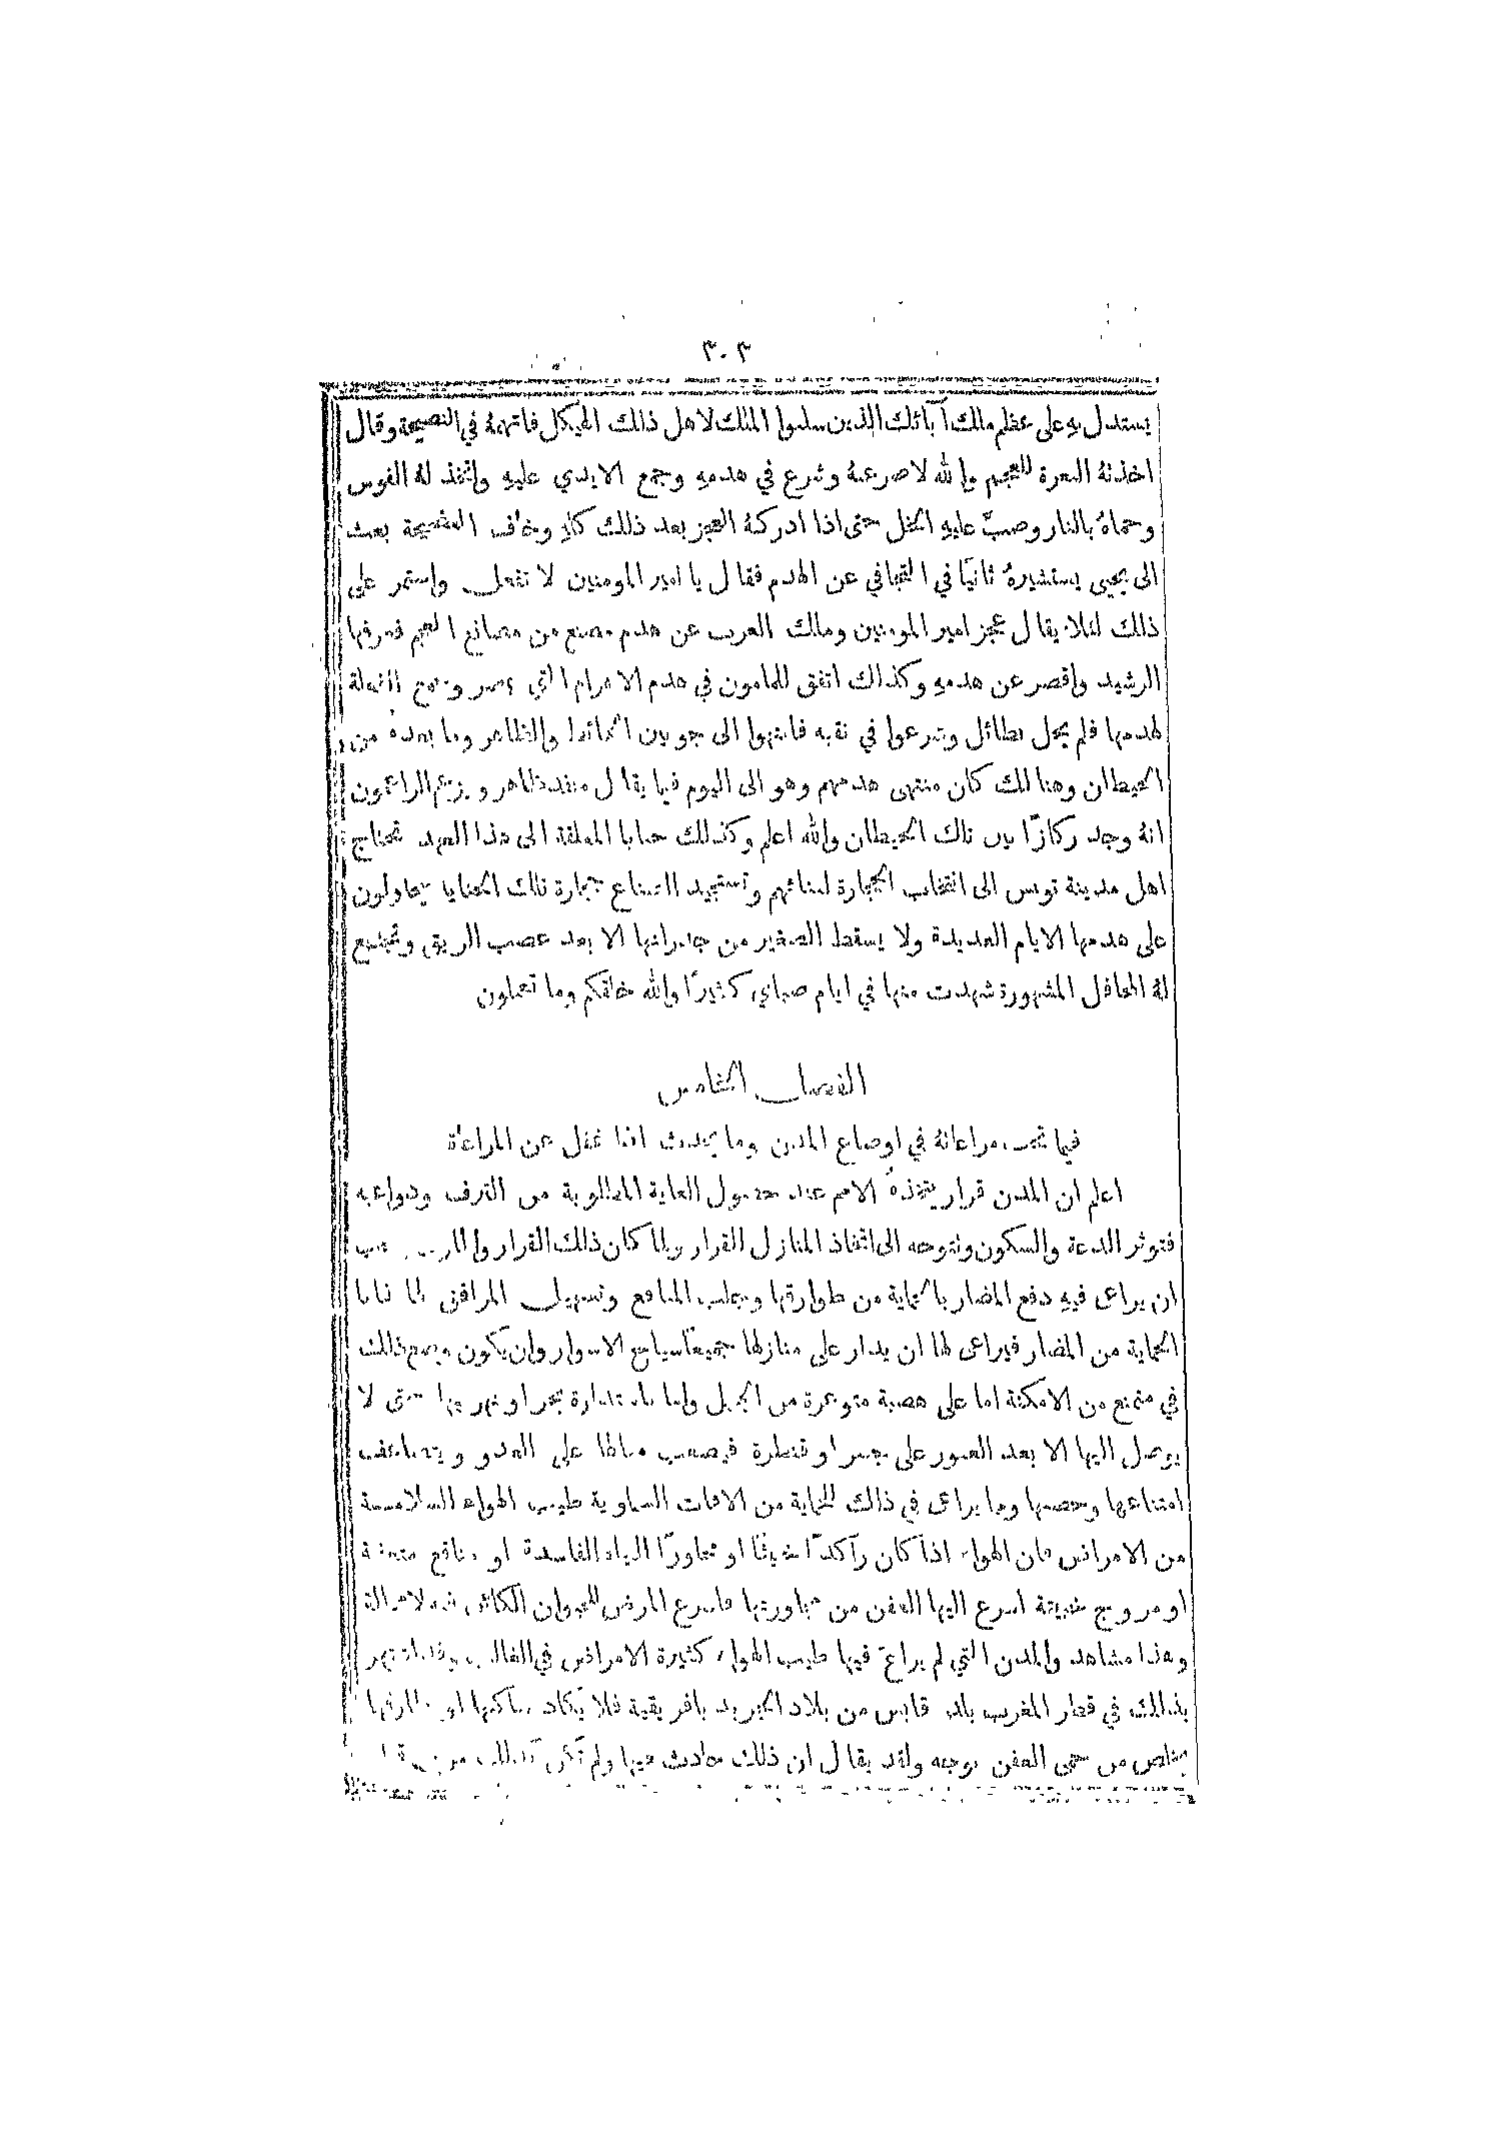 ٣٠٣
يستدل بهِ على عظم ملك آبائك الذين سلبوا الملك لاهل ذلك الهيكل فاتهمهُ في النصيحة وقال
اخذتهُ النعرة للعجم والله لاصرعنهُ وشرع في هدمهِ وجمع الايدي عليهِ واتخذ لهُ الفوس
وحماهُ بالنار وصبَّ عليهِ الخل حتى اذا ادركهُ العجز بعد ذلك كلهِ وخاف الفضيحة بعث
الى يحيى يستشيرهُ ثانيًا في التجافي عن الهدم فقال يا امير المومنين لا تفعل واستمر على
ذلك لئلا يقال عجز امير المومنين وملك العرب عن هدم مصنع من مصانع العجم فعرفها
الرشيد واقصر عن هدمهِ وكذلك اتفق للمامون في هدم الاهرام التي بمصر وجمع الفعلة
لهدمها فلم يحل بطائل وشرعوا في نقبه فانتهوا الى جو بين الحائط والظاهر وما بعدهُ من
الحيطان وهنالك كان منتهى هدمهم وهو الى اليوم فيما يقال منفذ ظاهر ويزعم الزاعمون
انهُ وجد ركازًا بين تلك الحيطان والله اعلم وكذلك حنايا المعلقة الى هذا العهد تحتاج
اهل مدينة تونس الى انتخاب الحجارة لبنائهم وتستجيد الصناع حجارة تلك الحنايا فيحاولون
على هدمها الايام العديدة ولا يسقط الصغير من جدرانها الا بعد عصب الريق وتجتمع
لهُ المحافل المشهورة شهدت منها في ايام صباي كثيرًا والله خلقكم وما تعملون
الفصل الخامس
فيما تجب مراعاتهُ في اوضاع المدن وما يحدث اذا غفل عن المراعاة
اعلم ان المدن قرار يتخذهُ الامم عند حصول الغاية المطلوبة من الترف ودواعيه
فتوثر الدعة والسكون وتتوجه الى اتخاذ المنازل للقرار ولما كان ذلك القرار والماوى وجب
ان يراعى فيهِ دفع المضار بالحماية من طوارقها وجلب المنافع وتسهيل المرافق لها فاما
الحماية من المضار فيراعى لها ان يدار على منازلها جميعًا سياج الاسوار وان يكون وضع ذلك
في متمنع من الامكنة اما على هضبة متوعرة من الجبل واما باستدارة بحر او نهر بها حتى لا
يوصل اليها الا بعد العبور على جسر او قنطرة فيصعب منالها على العدو ويتضاعف
امتناعها وحصنها ومما يراعى في ذلك للحماية من الافات السماوية طيب الهواء للسلامة
من الامراض فان الهواء اذا كان راكدًا خبيثًا او مجاورًا للمياه الفاسدة او منافع متعفنة
او مروج خبيثة اسرع اليها العفن من مجاورتها فاسرع المرض للحيوان الكائن فيه لا محالة
وهذا مشاهد والمدن التي لم يراعَ فيها طيب الهواء كثيرة الامراض في الغالب وقد اشتهر
بذلك في قطر المغرب بلد قابس من بلاد الجريد بافريقية فلا يكاد ساكنها او طارقها
يخلص من حمى العفن بوجه ولقد يقال ان ذلك حادث فيها ولم تكن كذلك من